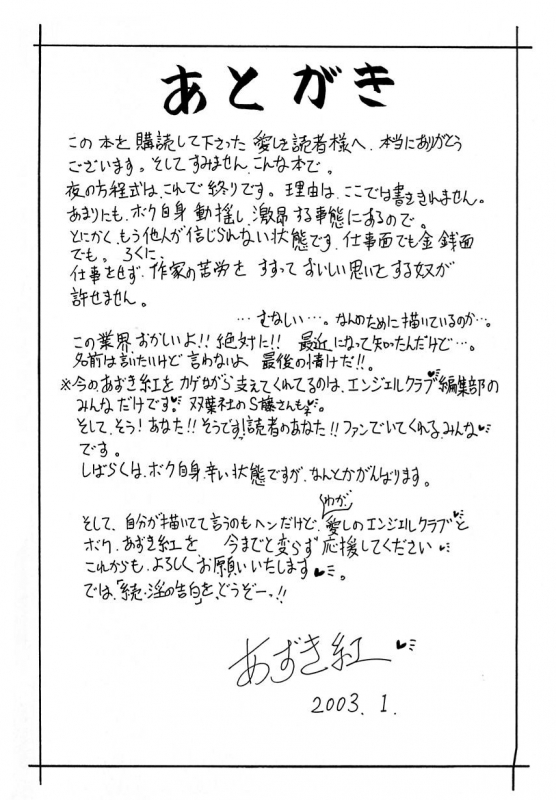 あとがき
この本を購読して下さった愛しき読者様へ、本当にありがとう
ございます。そしてすみません、こんな本で。
夜の方程式は、これで終りです。理由は、ここでは書ききれません。
あまりにも、ボク自身動揺し、激昂する事態にあるので。
とにかく、もう他人が信じられない状態です、仕事面でも金銭面
でも。ろくに、
仕事をせず、作家の苦労をすすっておいしい思いをする奴が
許せません。
…むなしい…。なんのために描いているのか…。
この業界、おかしいよ!!絶対に!!最近になって知ったんだけど…。
名前は言いたいけど言わないよ、最後の情けだ!!。
※今のあずき紅をカゲながら支えてくれてるのは、エンジェルクラブ編集部の
みんなだけです♥。双葉社のS藤さんも♥。
そして、そう!あなた!!そうです!読者のあなた!!ファンでいてくれる、みんな♥
です。
しばらくは、ボク自身、辛い状態ですが、なんとかがんばります。
そして、自分が描いてて言うのもヘンだけど、(わが)愛しのエンジェルクラブと
ボク、あずき紅を、今までと変らず応援してください♥
これからも、よろしく、お願いいたします♥。
では、「続・淫の告白」を、どうぞーっ!!
あずき紅♥
2003.1.